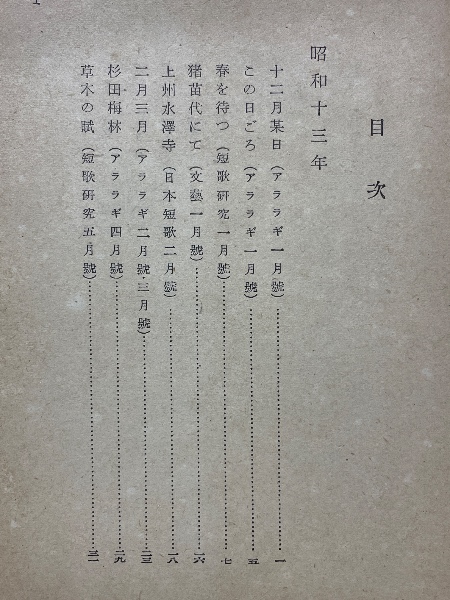 目次
昭和十三年
十二月某日（アララギ一月號）……………一
この日ごろ（アララギ一月號）……………五
春を待つ（短歌研究一月號）……………七
猪苗代にて（文藝一月號）……………一六
上州水澤寺（日本短歌二月號）……………一八
二月三月（アララギ二月號・三月號）……………二三
杉田梅林（アララギ四月號）……………二九
草木の賦（短歌研究五月號）……………三一
1